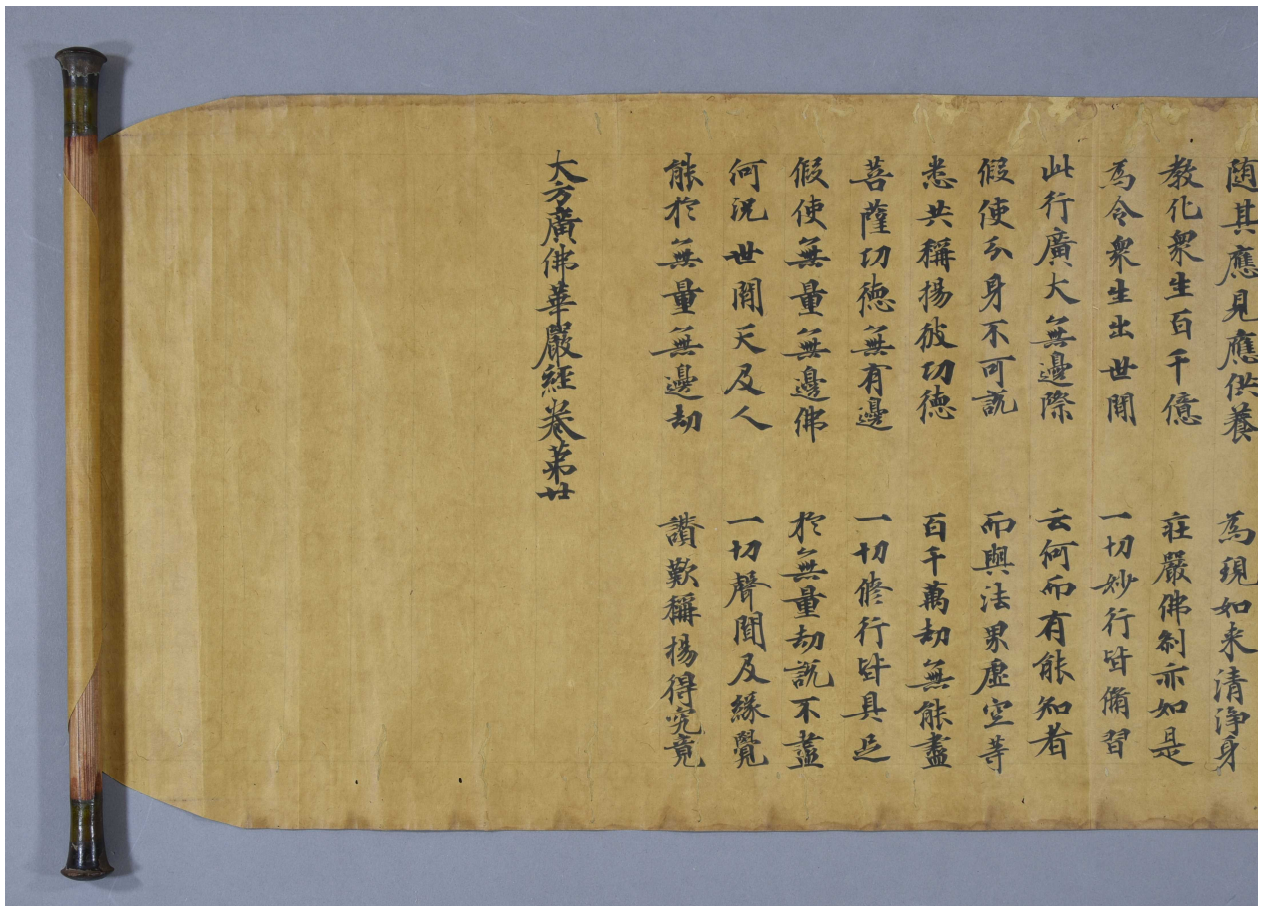 随其應見應供養 為現如来清淨身
教化衆生百千億 莊嚴佛刹亦如是
為令衆生出世間 一切妙行皆脩習
此行廣大無邊際 云何而有能知者
假使分身不可說 而與法界虛空等
悉共稱揚彼功德 百千萬劫無能盡
菩薩功德無有邊 一切修行皆具足
假使無量無邊佛 於無量劫說不盡
何況世間天及人 一切聲聞及緣覺
能於無量無邊劫 讚歎稱揚得究竟
大方廣佛華嚴經卷第廿